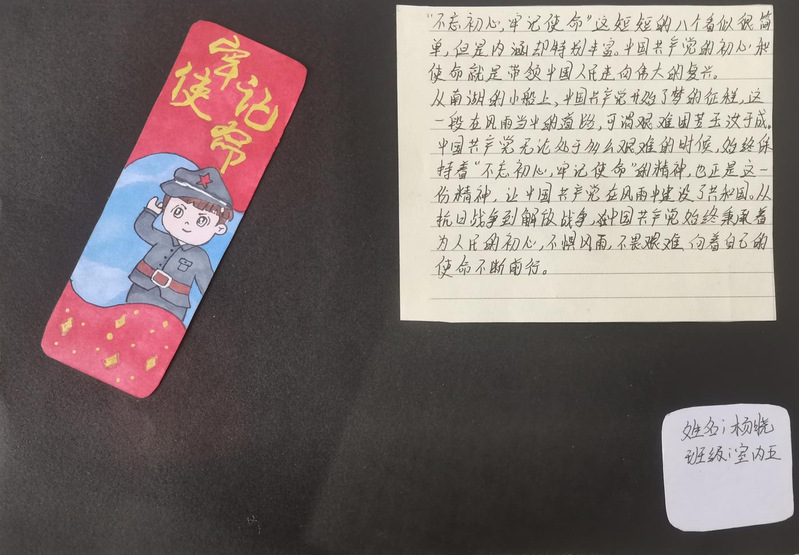 牢记
使命
"不忘初心,牢记使命"这短短的八个看似很简
单,但是内涵却特别丰富。中国共产党的初心和
使命就是带领中国人民走向伟大的复兴。
从南湖的小船上,中国共产党开始了梦的征程,这
一段在风雨当中的道路,可谓艰难困苦玉汝于成。
中国共产党无论处于多么艰难的时候,始终保
持着"不忘初心,牢记使命"的精神,也正是这一
份精神,让中国共产党在风雨中建设了共和国。从
抗日战争到解放战争,中国共产党始终秉承着
为人民的初心,不惧风雨,不畏艰难,向着自己的
使命不断前行。
姓名:杨晓
班级:室内五